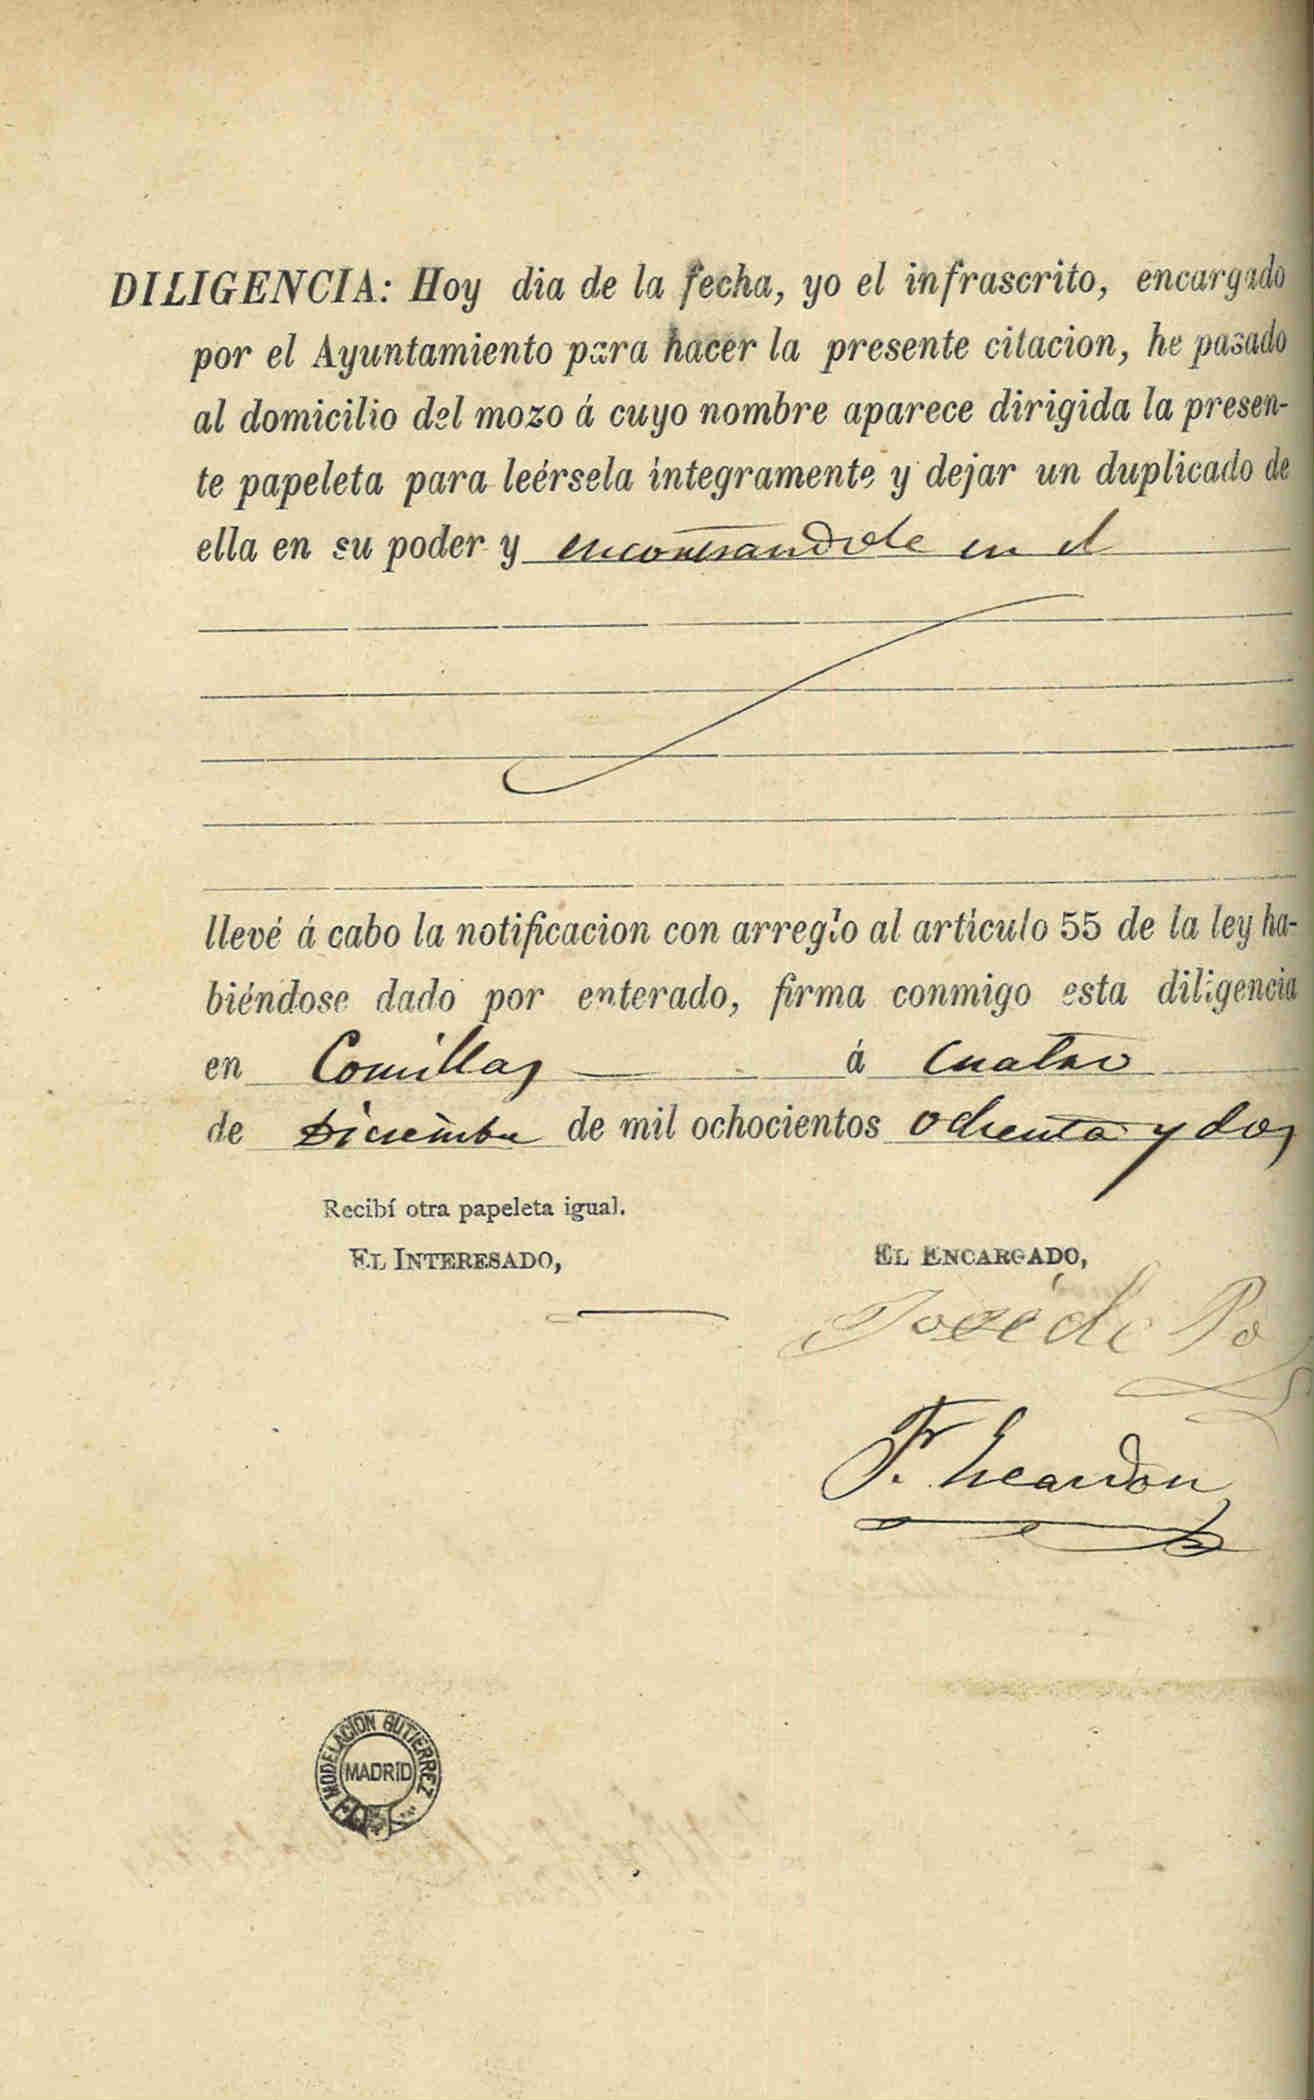 DILIGENCIA: Hoy dia de la fecha, yo el infrascrito, encargado
por el Ayuntamiento para hacer la presente citacion, he pasado
al domicilio del mozo á cuyo nombre aparece dirigida la presen-
te papeleta para leérsela íntegramente y dejar un duplicado de
ella en su poder y encontrandole en el
llevé á cabo la notificacion con arreglo al artículo 55 de la ley ha-
biéndose dado por enterado, firma conmigo esta diligencia
en Comillas á cuatro
de Diciembre de mil ochocientos ochenta y dos
Recibí otra papeleta igual.
EL INTERESADO,
EL ENCARGADO,
José de Po
F.
MODELACION GUTIERREZ
MADRID